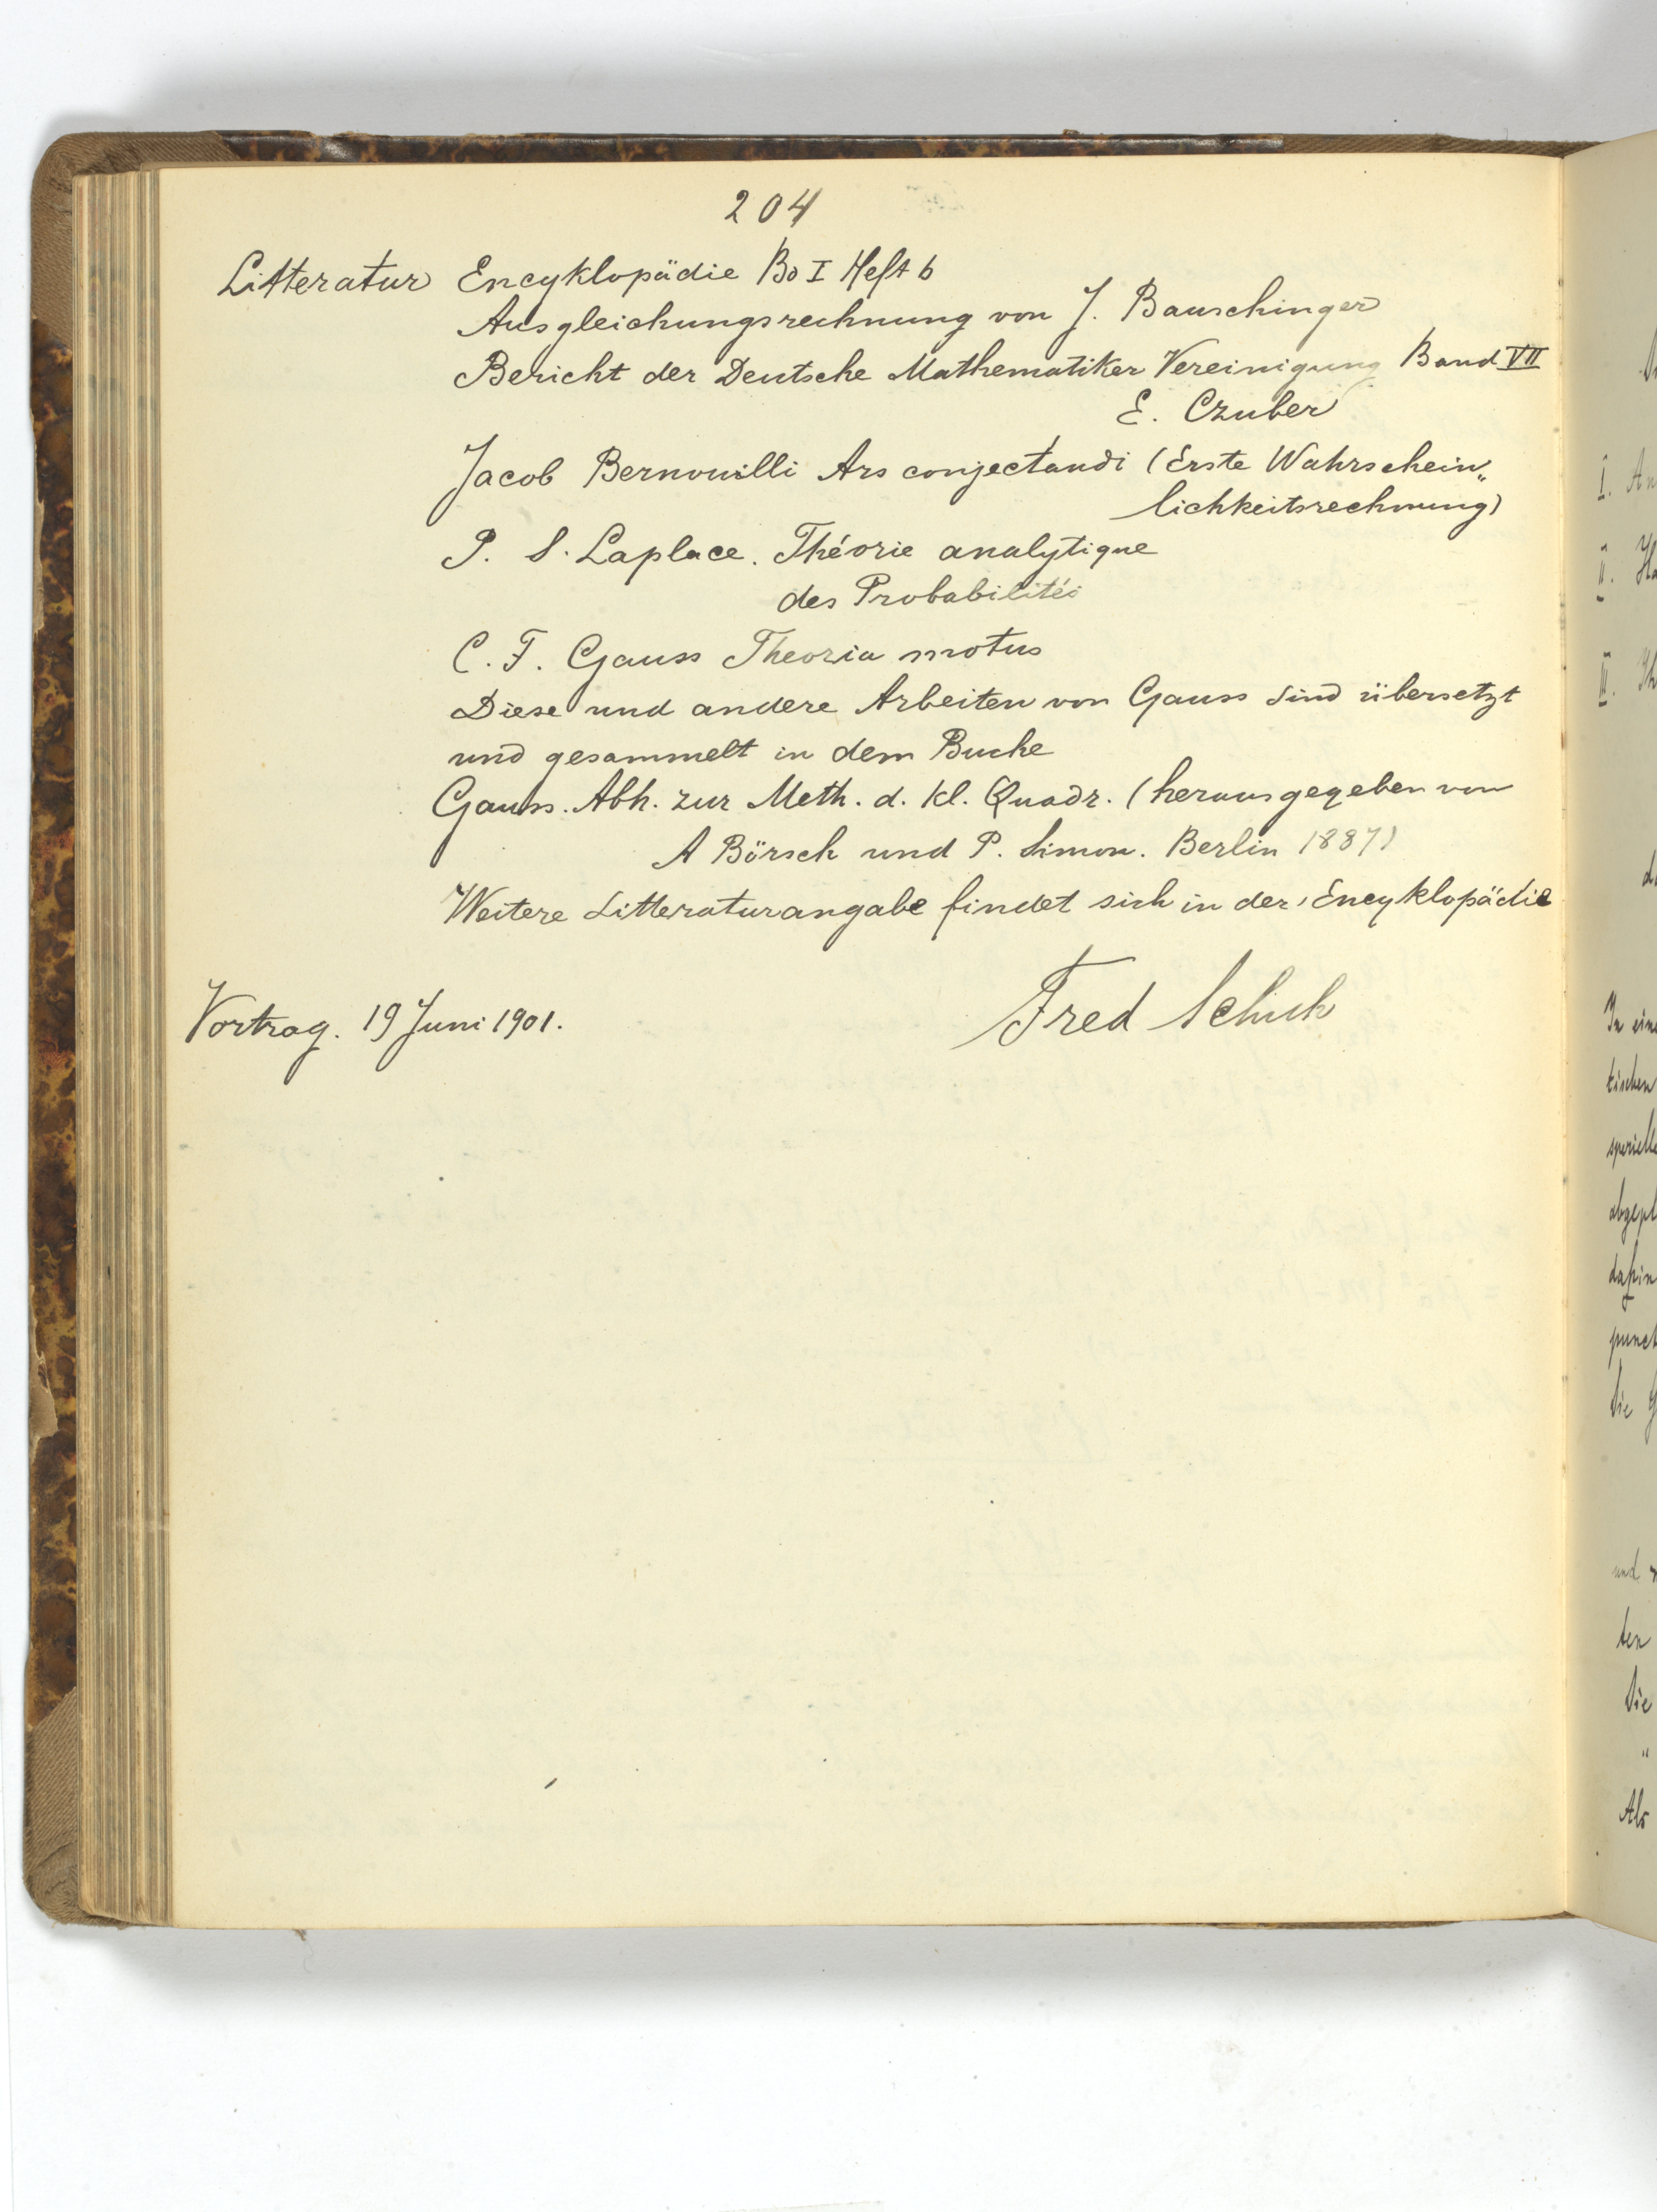 204
Litteratur Encyklopädie Bd I Heft 6
Ausgleichungsrechnung von J. Bauschinger
Bericht der Deutsche Mathematiker Vereinigung Band VII
E. Czuber
Jacob Bernouilli Ars conjectandi (Erste Wahrschein„
lichkeitsrechnung)
P. S. Laplace. Théorie analytique
des Probabilités
C. F. Gauss Theoria motus
Diese und andere Arbeiten von Gauss sind übersetzt
und gesammelt in dem Buche
Gauss. Abh. zur Meth. d. kl. Quadr. (herausgegeben von
A Börsch und P. Simon. Berlin 1887)
Weitere Litteraturangabe findet sich in der Encyklopädie
Vortrag. 19 Juni 1901.
Fred Schuh
I. An
II.
III.
In eine
tischen
speciell
punct
Die
und
ten
Die
"
Als